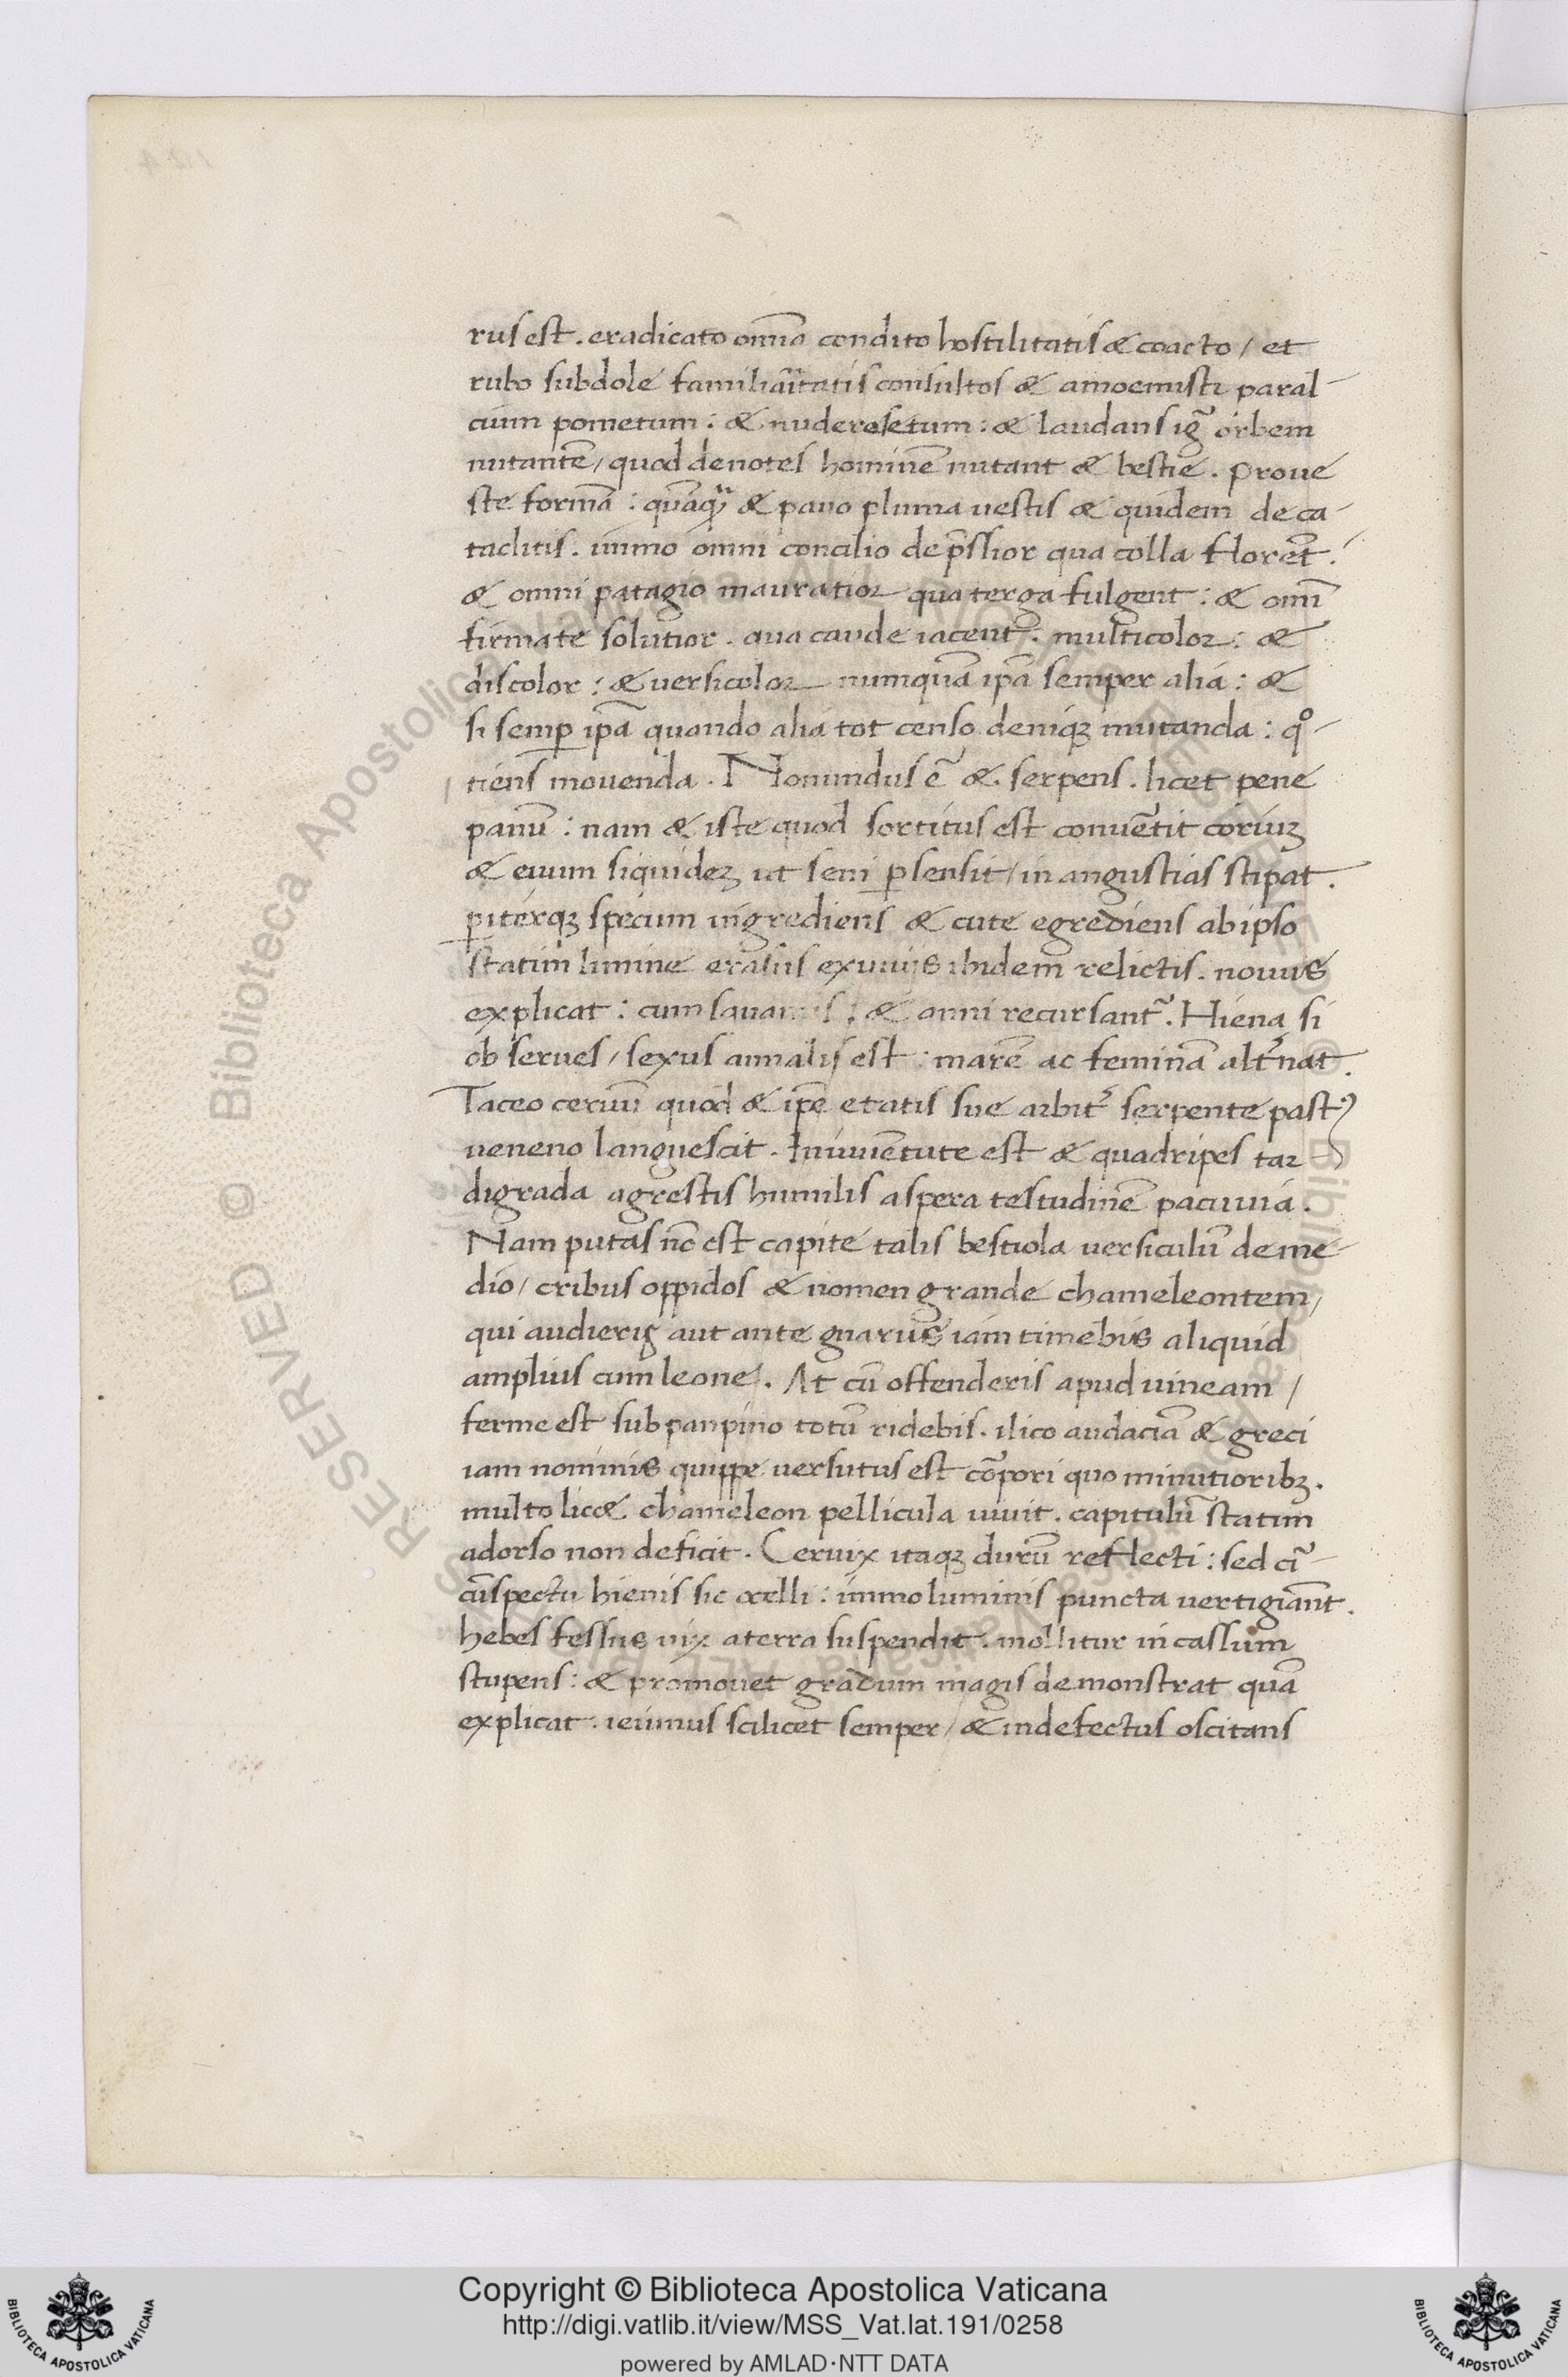 rus est. eradicato omnia condito hostilitatis & coacto / et
rubo subdole familiaritatis consultos & amoenisti paral-
cium pometum : & nuderosetum : & laudans igr orbem
nutantē / quod denotes hominē nutant & bestie. prove
ste formā : quāq & pavo pluma vestis & quidem de ca-
taclitis. immo omni concilio depressior qua colla florent.
& omni patagio mauratior qua terga fulgent : & omī
firmate solutior. qua caude iacent. multicolor : &
discolor : & versicolor numquā ipā semper alia : &
si semp ipā quando alia tot censo denique mutanda : qo-
tiens movenda. Nonundus ē & serpens. licet pene
panū : nam & iste quod sortitus est convertit corium
& evum siquidem ut seni persensit / in angustias stipat.
piterque specum ingrediens & cute egrediens ab ipso
statim limine erasus exuviis ibidem relictis. novus
explicat : cum & anni recursant. Hiena si
observes / sexus annalis est : marē ac feminā alt̄nat.
Taceo cervū quod & ipē etatis sue arbit serpente pastꝰ
veneno languescit. Iniuventute est & quadripes tar-
digrada agrestis humilis aspera testudinē pacuvia.
Nam putas nō est capite talis bestiola versiculū de me-
dio / cribus oppidos & nomen grande chameleontem /
qui audieris aut ante gnarus iam timebis aliquid
amplius cum leone. At cū offenderis apud vineam /
ferme est sub panpino totū ridebis. ilico audaciā & greci
iam nominis quippe versutus est cōpori quo minutioribꝫ.
multo lic& chameleon pellicula vivit. capitulū statim
adorso non deficit. Cervix itaqꝫ durū reflecti : sed cir-
cūspectu hienis sic ocelli : immo luminis puncta vertigiānt.
hebes fessus vix a terra suspendit. mollitur in cassum
stupens : & promovet gradum magis demonstrat quā
explicat. ieiunus scilicet semper / & indefectus oscitans
Copyright © Biblioteca Apostolica Vaticana
http://digi.vatlib.it/view/MSS_Vat.lat.191/0258
powered by AMLAD·NTT DATA
BIBLIOTECA APOSTOLICA VATICANA
BIBLIOTECA APOSTOLICA VATICANA